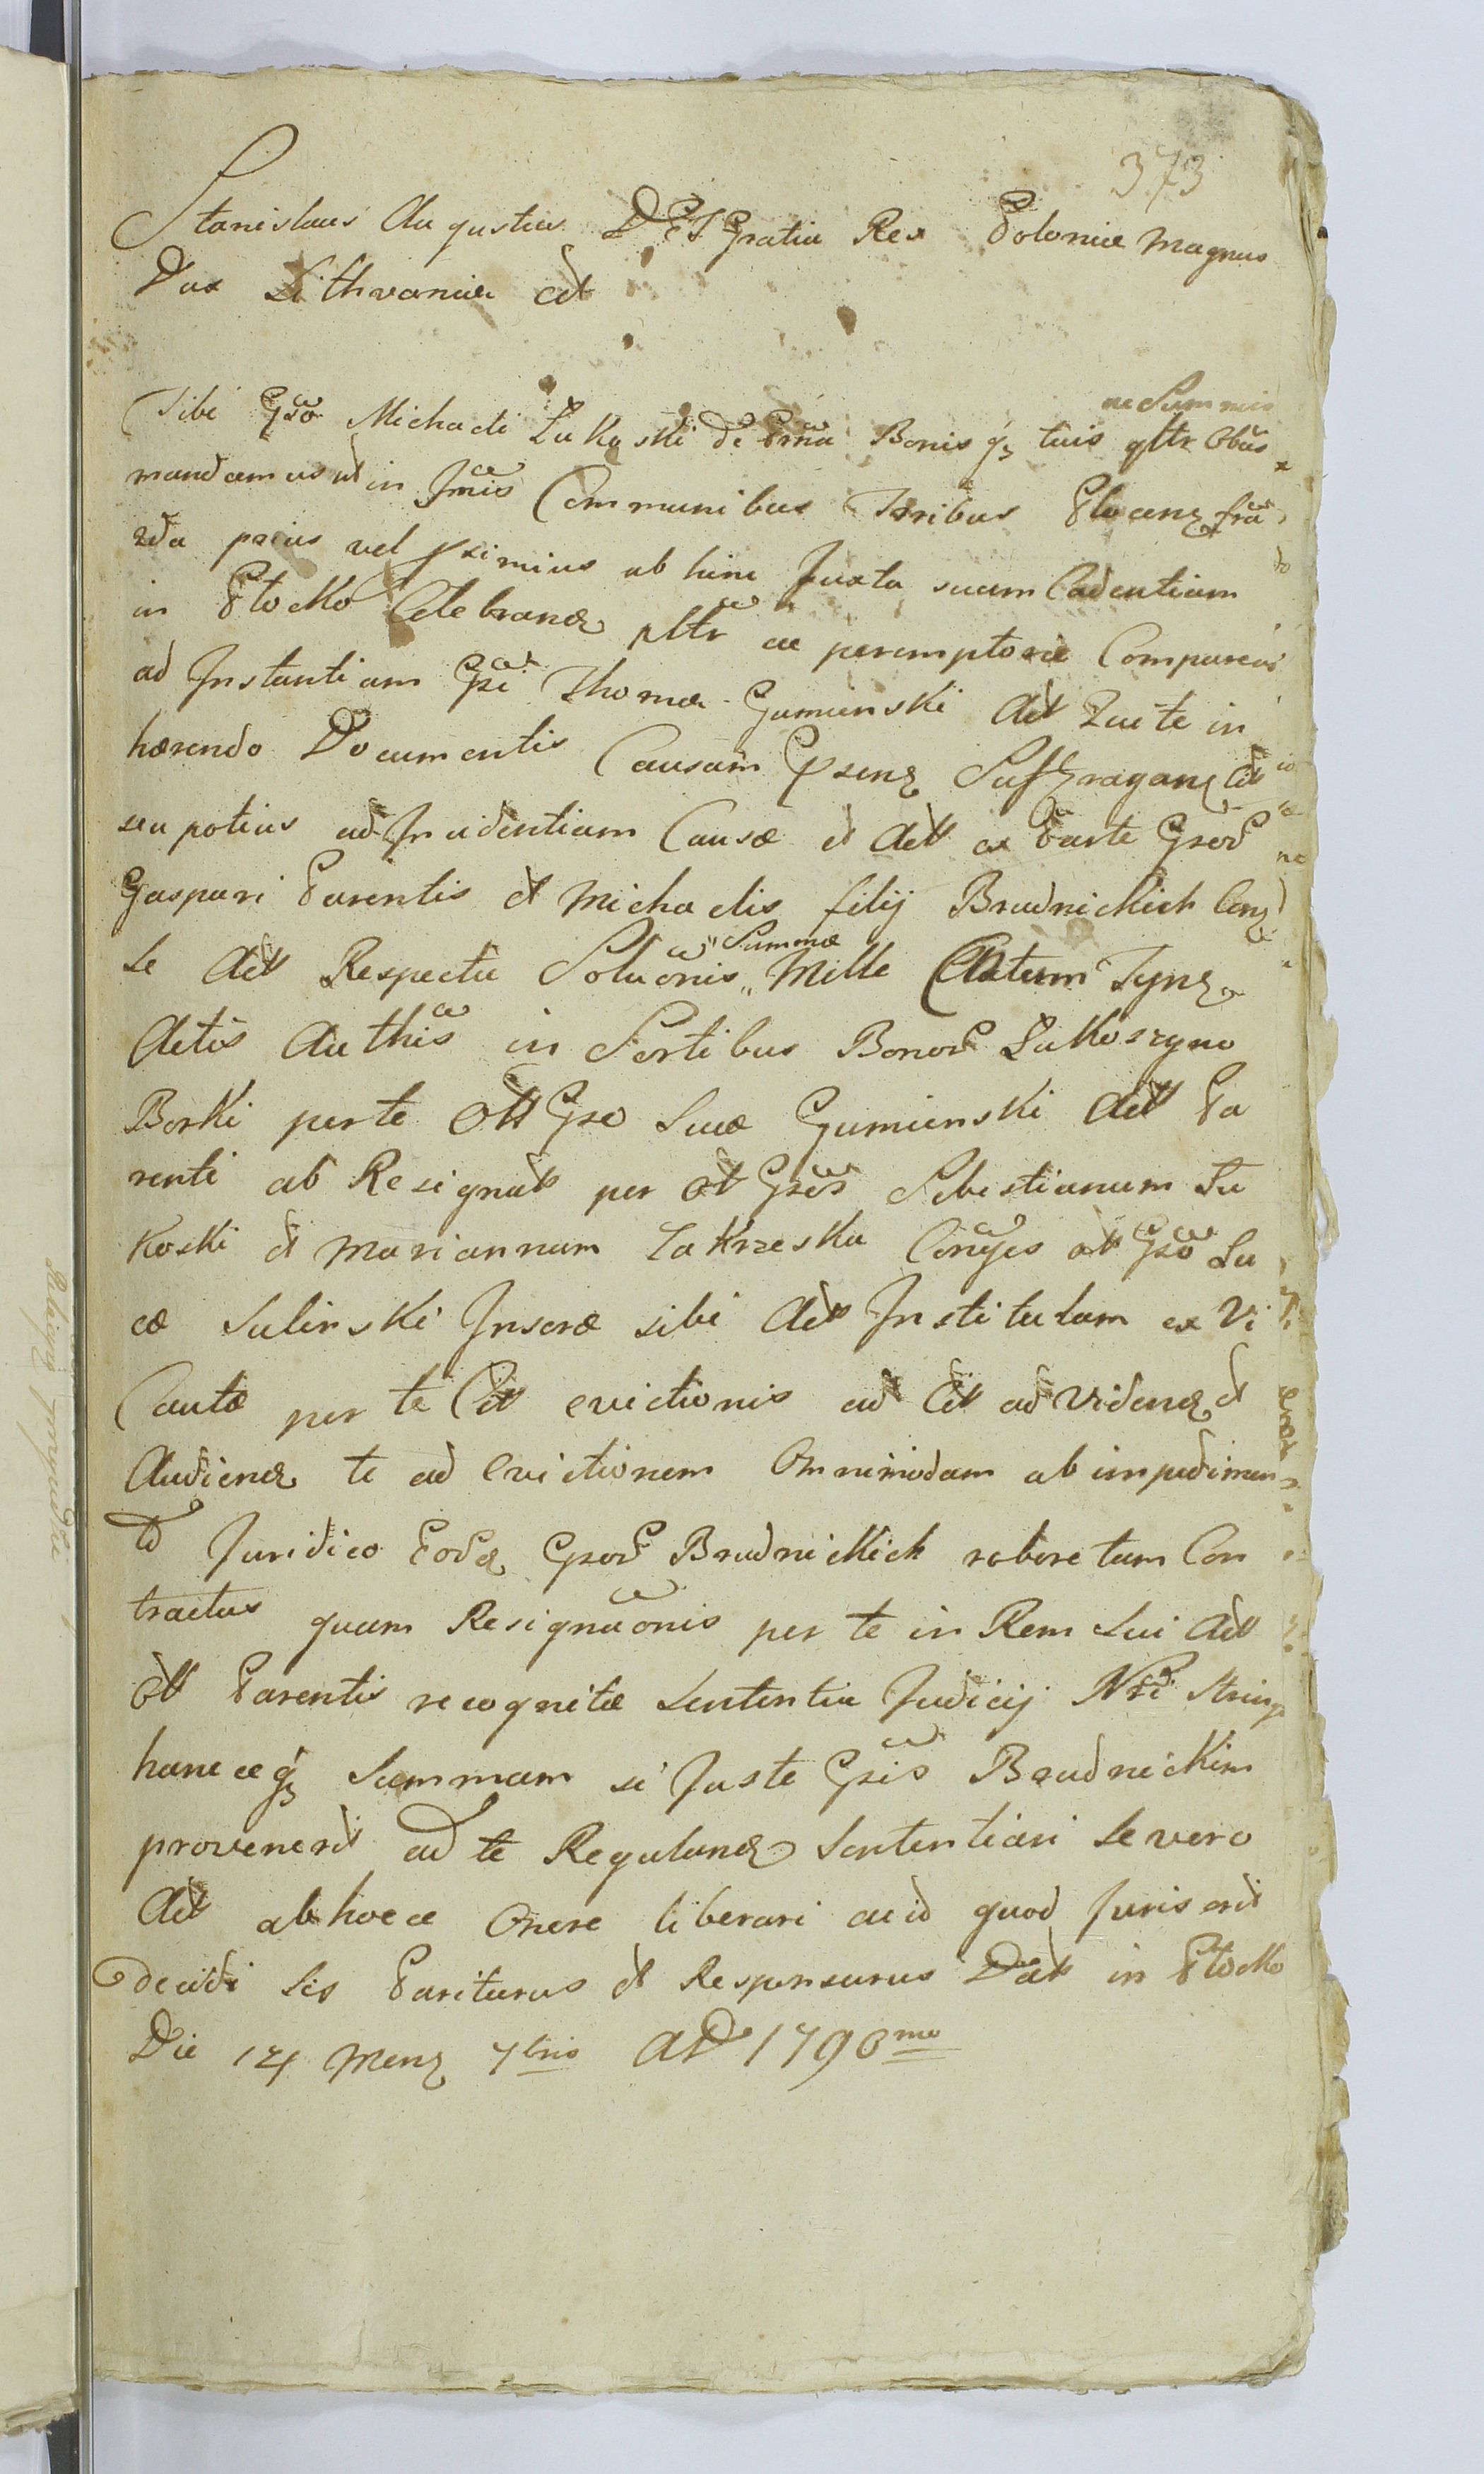 373
Stanislaus Augustus DEI Gratia Rex Poloniæ Magnus
Dux Lithvaniæ etc
ac Summis
Tibi Gso Michaeli Łukoski de Psna Bonisq tuis gltr Obus
mandamus ut in Jnis Communibus Trribus Plocen
prius vel pximius ab hinc Juxta suam Cadentiam
in Płocko Celebrand pltr ac peremptorie Compareas
ad Instantiam Gsi Thomæ Gumienski Act Qui te in
hærendo Documentis Causam Psen Suffragan Cit
seu potius ad Incidentiam Causæ et Act ex Parte Gsor
Gaspari Parentis et Michaelis filij Brudnickich
se Act Respectu Soluonis Summæ Mille Tyn
Actis Authis in Sortibus Bonor Łukoszyno
Borki per te Ott Gso Lucæ Gumienski Act Pa
renti ab Resignat per Ott Gsos Sebestianum Łu
koski et Mariannam Zakrzeska Coniges ott Gso Lu
cæ Sulinski Inscræ sibi Act Institutam ex Vi
Cautæ per te Cit evictionis ad Cit ad Vidend et
Audiend te ad Evictionem Omnimodam ab impedimen
to Juridico Eord Gsor Brudnickich robore tam Con
tractus quam Resignaonis per te in Rem sui Act
Ott Parentis recognitæ Sententia Judicij Nri String
hancceq Summam si Juste Gsis Brudnickim
provenerit ad te Reguland Sententiari se vero
Act ab hocce Onere liberari ac id quod Juris erit
decidi Sis Pariturus et Responsurus Dat in Płocko
Die 14 Mens 7bris AD 1790mo